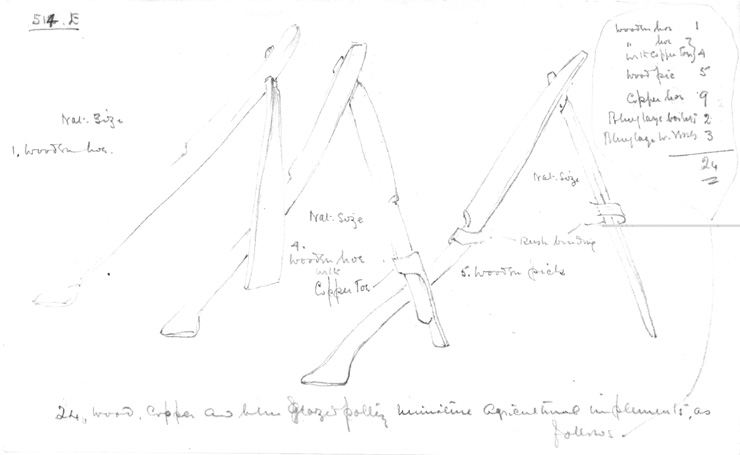 514. E
Wooden hoe 1
" hoe
with Copper Toe } 4
Wood pic 5
Copper hoe 9
Blue glaze 2
Blue glaze 3
24
Nat: Size
1. Wooden hoe.
Nat: Size
4.
Wooden hoe
with
Copper Toe
Nat: Size
Rush binding
5. Wooden picks
24, Wood, Copper and blue Glazed pottery miniature Agricultural implements, as
follows.